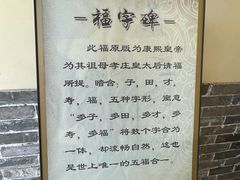 福字碑
此福原版为康熙皇帝
为其祖母孝庄皇太后请福
所提。暗合：子，田，才，
寿，福，五种字形，寓意
“多子，多田，多才，多
寿，多福”将数个字合为
一体，却流畅自然，这也
是世上唯一的五福合一。